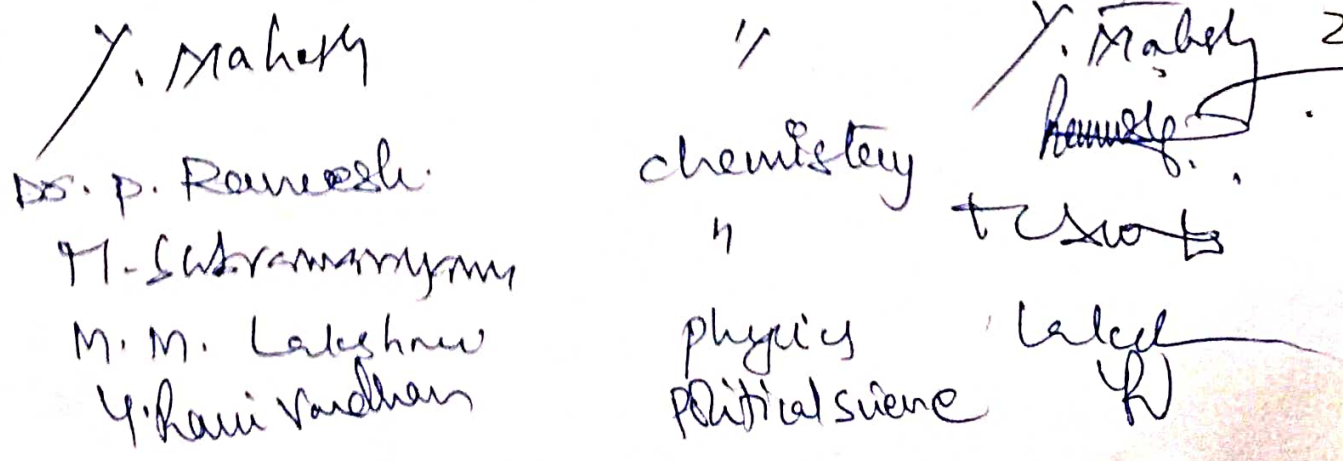 Y. Mahesh " Y. Mahesh 2
Dr. P. Ramesh. chemistry Ramesh
M. Subramanyam "
M. M. Lakshmi physics Laksh
Y. Ravi Vardhan political science YRV